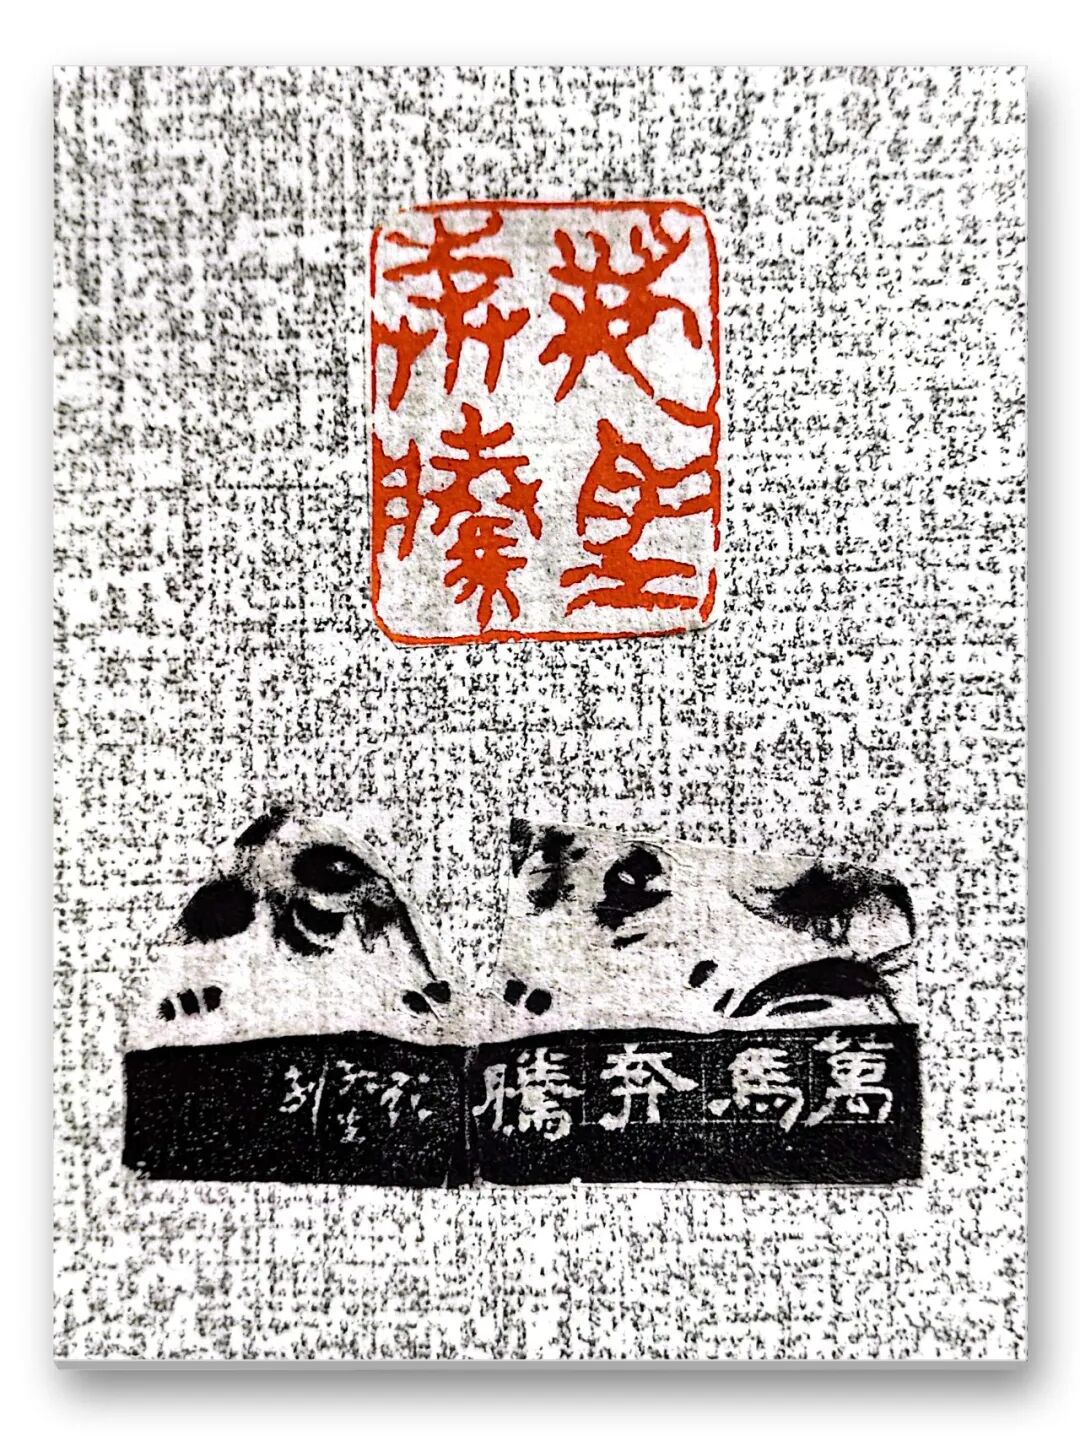 萬馬
奔騰
萬馬奔騰
生刻